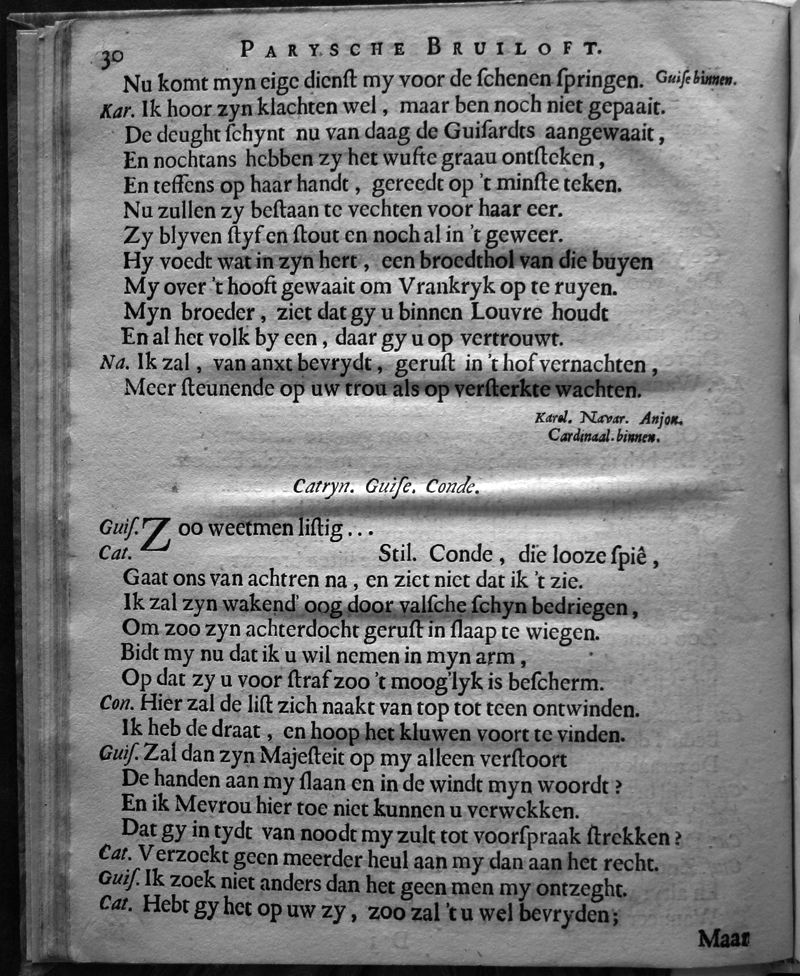 30 PARYSCHE BRUILOFT.
Nu komt myn eige dienſt my voor de ſchenen ſpringen. Guiſe binnen.
Kar. Ik hoor zyn klachten wel, maar ben noch niet gepaait.
De deught ſchynt nu van daag de Guiſardts aangewaait,
En nochtans hebben zy het wufte graau ontſteken,
En teffens op haar handt, gereedt op 't minſte teken.
Nu zullen zy beſtaan te vechten voor haar eer.
Zy blyven ſtyf en ſtout en noch al in 't geweer.
Hy voedt wat in zyn hert, een broedthol van die buyen
My over 't hooft gewaait om Vrankryk op te ruyen.
Myn broeder, ziet dat gy u binnen Louvre houdt
En al het volk by een, daar gy u op vertrouwt.
Na. Ik zal, van anxt bevrydt, geruſt in 't hof vernachten,
Meer ſteunende op uw trou als op verſterkte wachten.
Karel. Navar. Anjou.
Cardinaal. binnen.
Catryn. Guiſe. Conde.
Guiſ. Zoo weetmen liſtig...
Cat. Stil. Conde, die looze ſpiê,
Gaat ons van achtren na, en ziet niet dat ik 't zie.
Ik zal zyn wakend' oog door valſche ſchyn bedriegen,
Om zoo zyn achterdocht geruſt in ſlaap te wiegen.
Bidt my nu dat ik u wil nemen in myn arm,
Op dat zy u voor ſtraf zoo 't moog'lyk is beſcherm.
Con. Hier zal de liſt zich naakt van top tot teen ontwinden.
Ik heb de draat, en hoop het kluwen voort te vinden.
Guiſ. Zal dan zyn Majeſteit op my alleen verſtoort
De handen aan my ſlaan en in de windt myn woordt?
En ik Mevrou hier toe niet kunnen u verwekken.
Dat gy in tydt van noodt my zult tot voorſpraak ſtrekken?
Cat. Verzoekt geen meerder heul aan my dan aan het recht.
Guiſ. Ik zoek niet anders dan het geen men my ontzeght.
Cat. Hebt gy het op uw zy, zoo zal 't u wel bevryden;
Maar